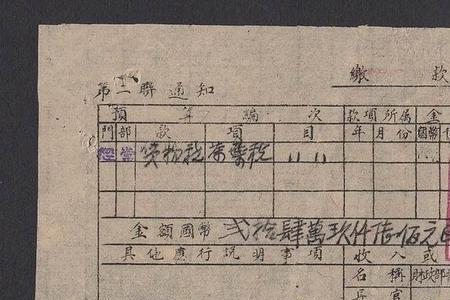 繳 款
第二聯通知
預 算 編 次 款項所屬 金
門 部 款 項 目 年 月 份 國幣
經常 貨物稅 茶葉稅 〃 〃
金額國幣 弍拾肆萬玖仟 佰元
其他應行說明事項 收入或
名稱 財政部
長官